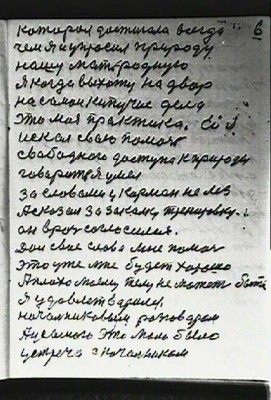 которая достигала всегда 6
чем я и упросил природу
нашу мать родную
Я когда выхожу на двор
на самом кипучие дела
это моя практика. Ей я
искал свою помощ
свободного доступа к природы
говорить я умел
за словами у карман не лез
А сказал за закалку тренировку.
он враз согласился.
Дал свое слова мне помоч
это уже мне будет хорошо
А плохо моему телу не может быть
Я удовлетварился
начальниковым разговором
А у самого это моль было
устреча з начальником